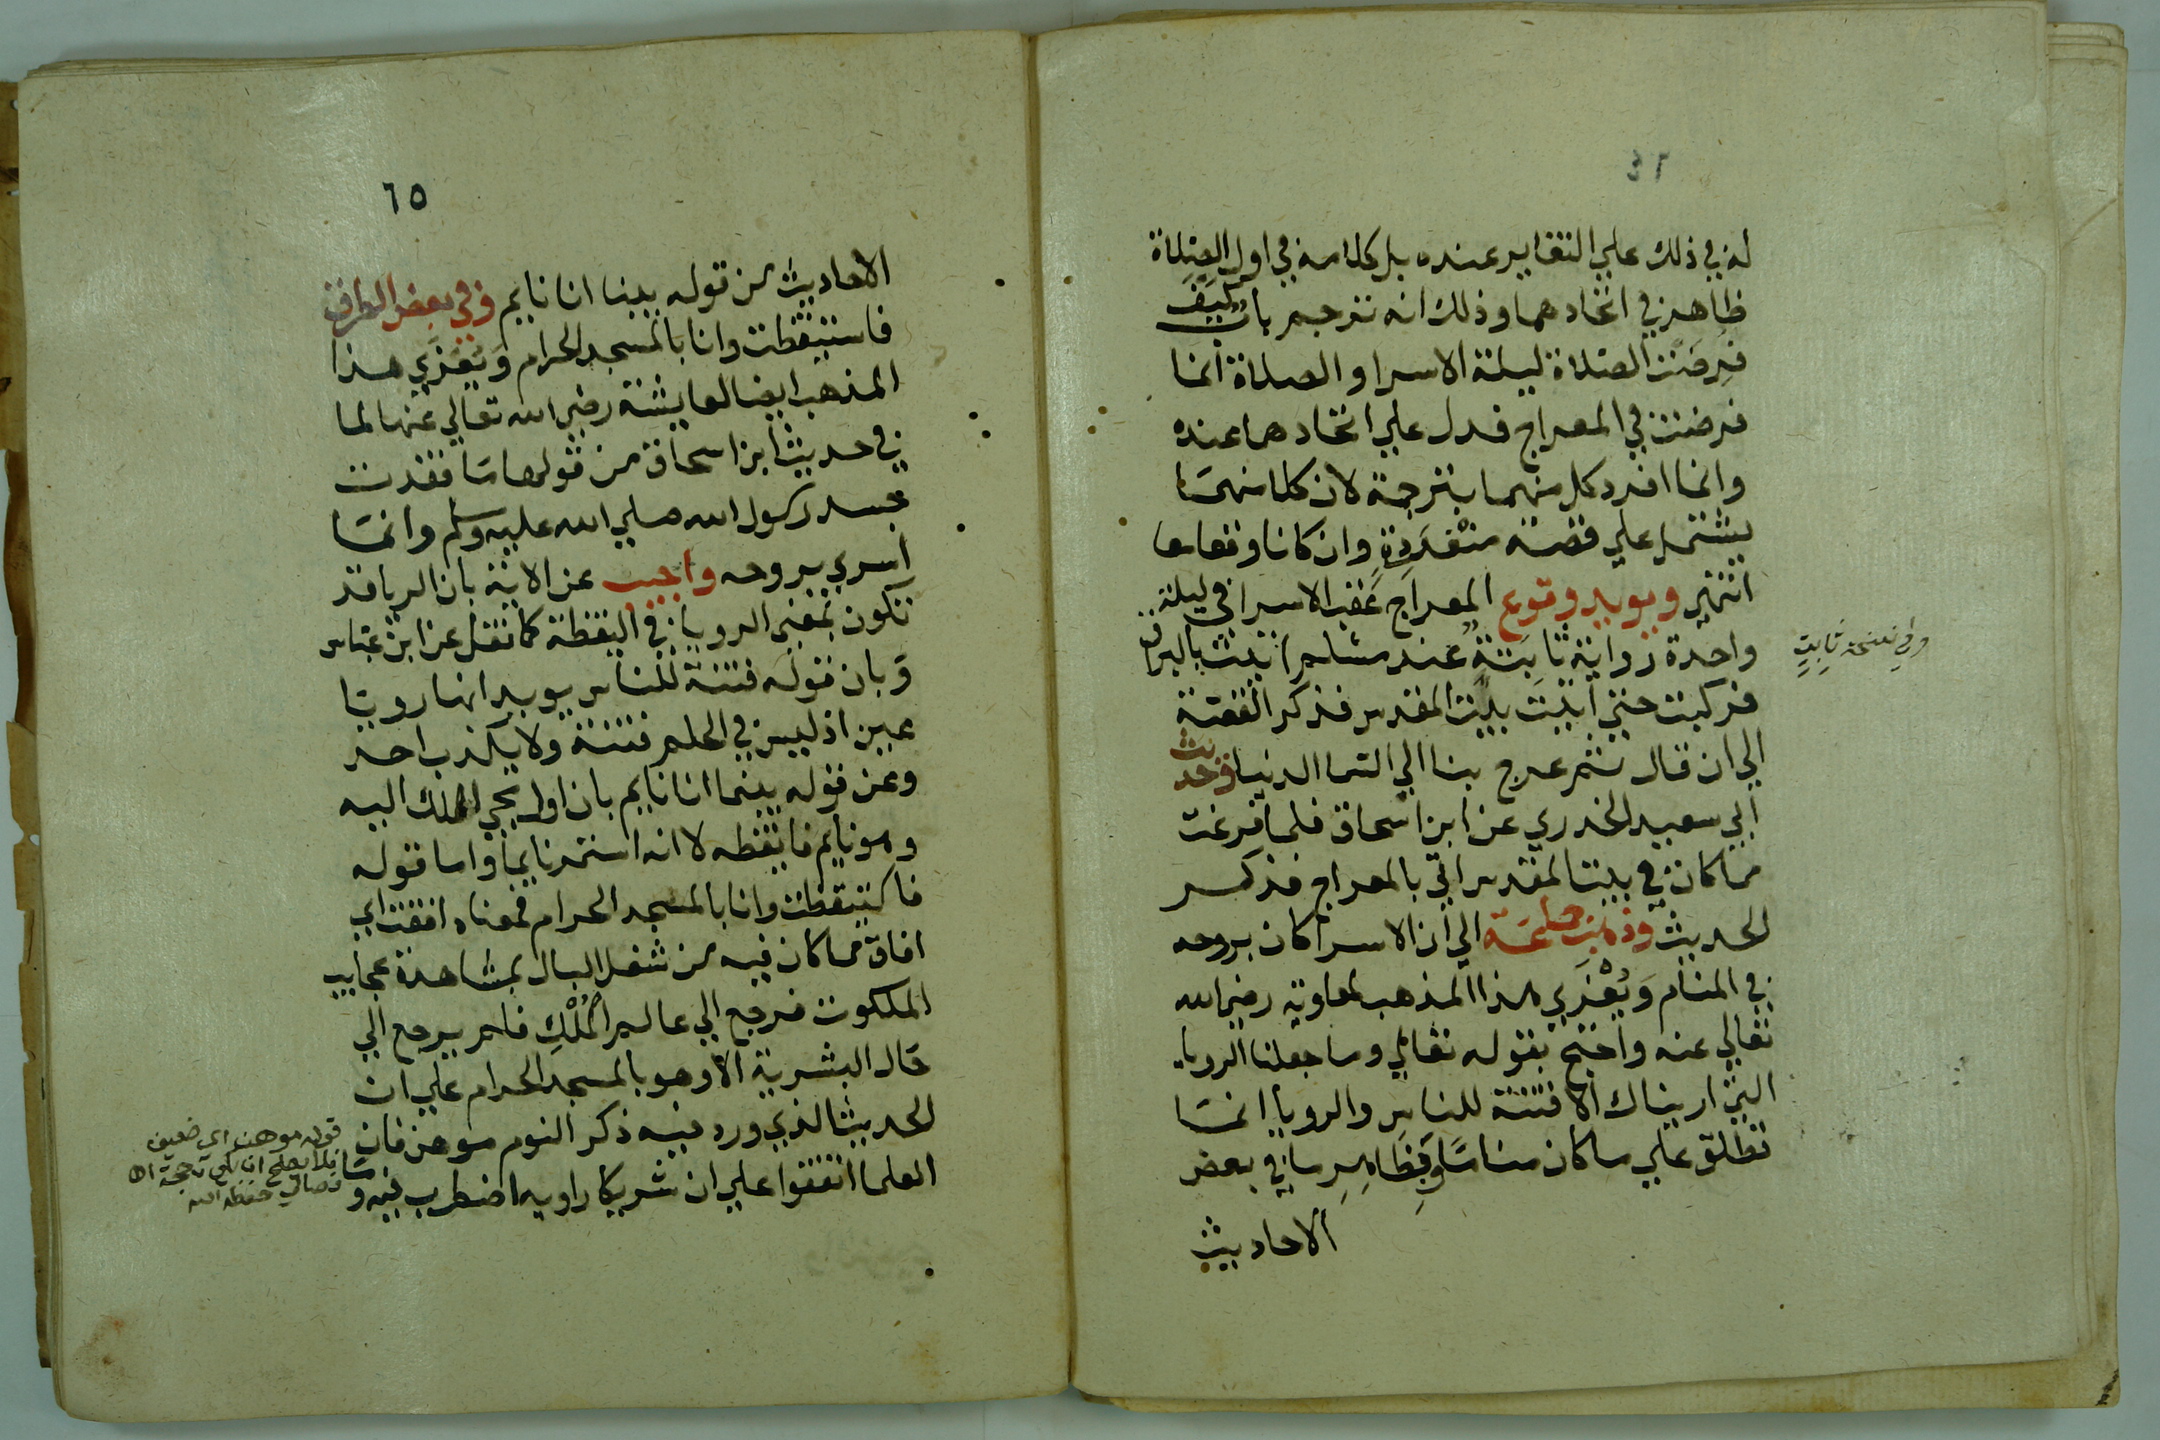 ٦٤
له في ذلك علي التغاير عنده بل كلامه في اول الصلاة
ظاهر في اتحادهما وذلك انه ترجم باب كيف
فرضت الصلاة ليلة الاسرا والصلاة انما
فرضت في المعراج فدل علي اتحادهما عنده
وانما افرد كل منهما بترجمة لان كلا منهما
يشتمل علي قصة منفردة وان كانا وقعا معا
انتهي ويويد وقوع المعراج عقب الاسرا في ليلة
واحدة رواية ثابتة عند مسلم اتيت بالبراق
وفي نسخة ثابت
فركبت حتي اتيت بيت المقدس فذكر القصة
الي ان قال ثم عرج بنا الي السما الدنيا وفي حديث
ابي سعيد الخدري عن ابن اسحاق فلما فرغت
مما كان في بيت المقدس اتي بالمعراج فذكر
الحديث وذهبت جماعة الي ان الاسرا كان بروحه
في المنام ويعزي هذا المذهب لمعاوية رضي الله
تعالي عنه واحتج بقوله تعالي وما جعلنا الرويا
التي اريناك الا فتنة للناس والرويا انما
تطلق علي ما كان مناما وبظاهر ما في بعض
الاحاديث
٦٥
الاحاديث من قوله بينا انا نايم وفي بعض الطرق
فاستيقظت وانا بالمسجد الحرام ويعزي هذا
المذهب ايضا لعايشة رضي الله تعالي عنها لما
في حديث ابن اسحاق من قولها ما فقدت
جسد رسول الله صلي الله عليه وسلم وانما
اسري بروحه واجيب عن الاية بان الريا قد
تكون بمعني الرويا في اليقظة كما نقل عن ابن عباس
وبان قوله فتنة للناس يويد انها رويا
عين اذ ليس في الحلم فتنة ولا يكذب احد
وعن قوله بينما انا نايم بان اول مجي الملك اليه
وهو نايم فايقظه لا انه استمر نايما واما قوله
فاستيقظت وانا بالمسجد الحرام فمعناه افقت اي
افاق مما كان فيه من شغل البال بمشاهدة عجايب
الملكوت فرجع الي عالم الملك فلم يرجع الي
حال البشرية الا وهو بالمسجد الحرام علي ان
الحديث الذي ورد فيه ذكر النوم موهن فان
العلما اتفقوا علي ان شريكا راويه اضطرب فيه وسا
قوله موهن اي ضعيف
فلا يصلح ان يكون حجة اه
حفظه الله